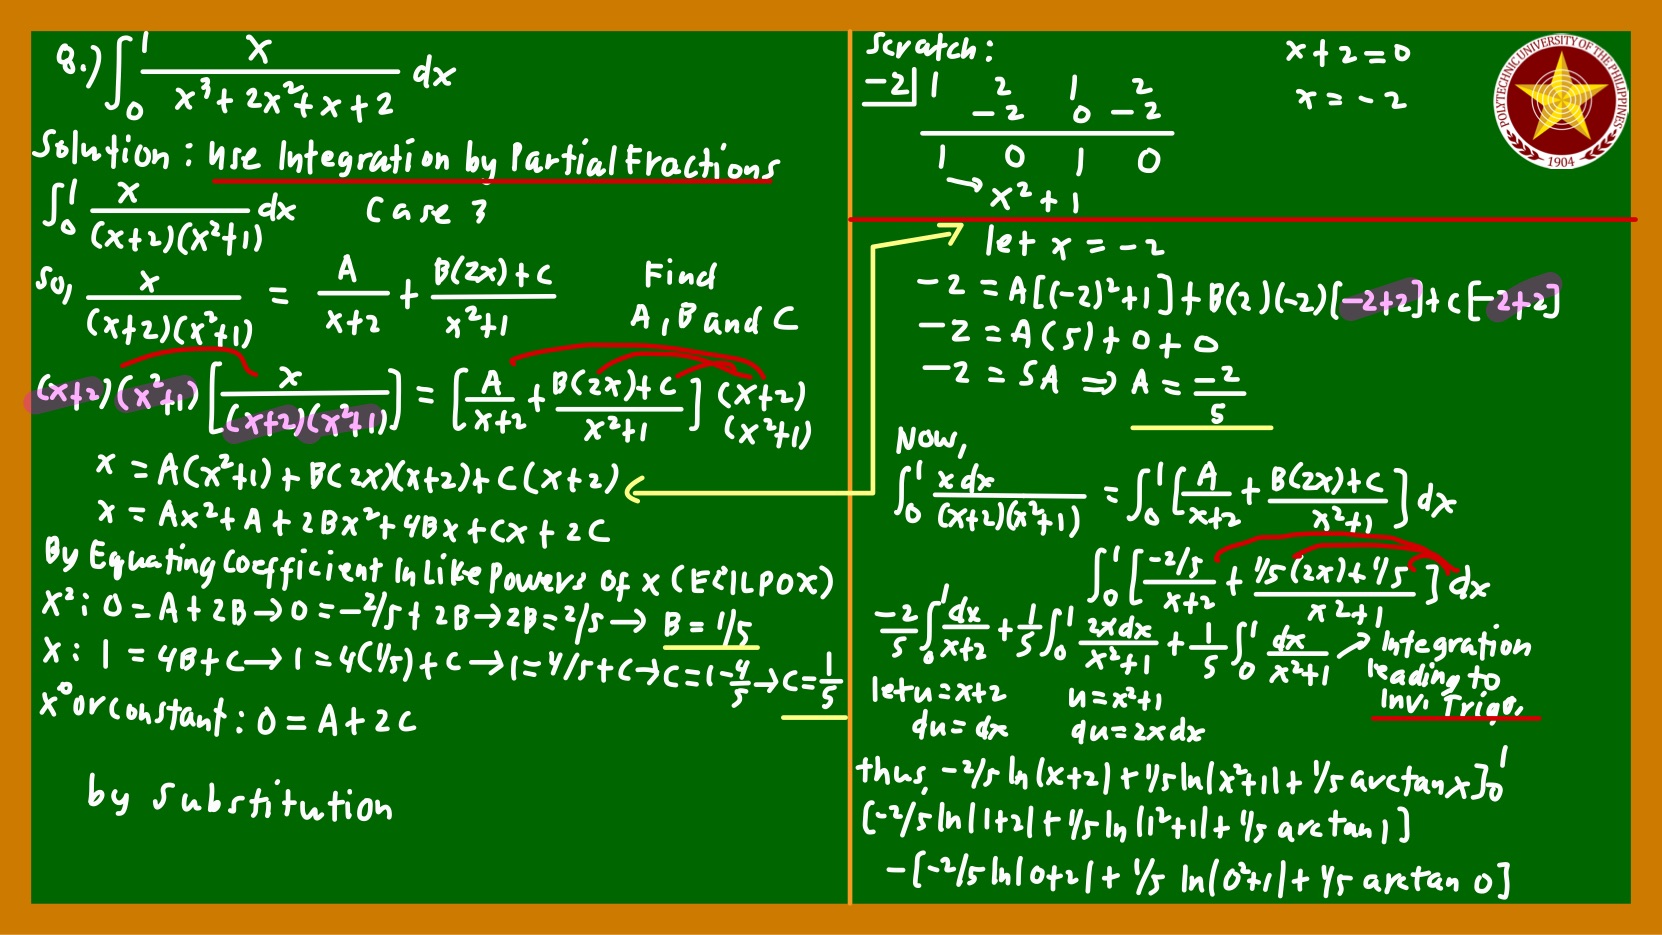 8.) ∫₀¹ x / (x³ + 2x² + x + 2) dx
Solution: Use Integration by Partial Fractions
∫₀¹ x / ((x+2)(x²+1)) dx    Case 3
So, x / ((x+2)(x²+1)) = A/(x+2) + (B(2x)+C)/(x²+1)    Find
A, B and C
(x+2)(x²+1) [x / ((x+2)(x²+1))] = [A/(x+2) + (B(2x)+C)/(x²+1)] (x+2)(x²+1)
x = A(x²+1) + B(2x)(x+2) + C(x+2)
x = Ax² + A + 2Bx² + 4Bx + Cx + 2C
By Equating Coefficient In Like Powers Of x (ECILPOX)
x²: 0 = A + 2B → 0 = -2/5 + 2B → 2B = 2/5 → B = 1/5
x: 1 = 4B + C → 1 = 4(1/5) + C → 1 = 4/5 + C → C = 1 - 4/5 → C = 1/5
x⁰ or constant: 0 = A + 2C
by substitution
Scratch:
-2| 1 2 1 2
-2 0 -2
1 0 1 0
→ x² + 1
x + 2 = 0
x = -2
POLYTECHNIC UNIVERSITY OF THE PHILIPPINES
1904
let x = -2
-2 = A[(-2)²+1] + B(2)(-2)[-2+2] + C[-2+2]
-2 = A(5) + 0 + 0
-2 = 5A ⇒ A = -2/5
Now,
∫₀¹ x dx / ((x+2)(x²+1)) = ∫₀¹ [A/(x+2) + (B(2x)+C)/(x²+1)] dx
∫₀¹ [(-2/5)/(x+2) + (1/5(2x)+1/5)/(x²+1)] dx
-2/5 ∫₀¹ dx/(x+2) + 1/5 ∫₀¹ 2xdx/(x²+1) + 1/5 ∫₀¹ dx/(x²+1) → Integration
leading to
Inv. Trigo.
let u = x+2    u = x²+1
du = dx    du = 2xdx
thus, -2/5 ln(x+2) + 1/5 ln|x²+1| + 1/5 arctan x]₀¹
[-2/5 ln|1+2| + 1/5 ln|1²+1| + 1/5 arctan 1]
-[-2/5 ln|0+2| + 1/5 ln|0²+1| + 1/5 arctan 0]